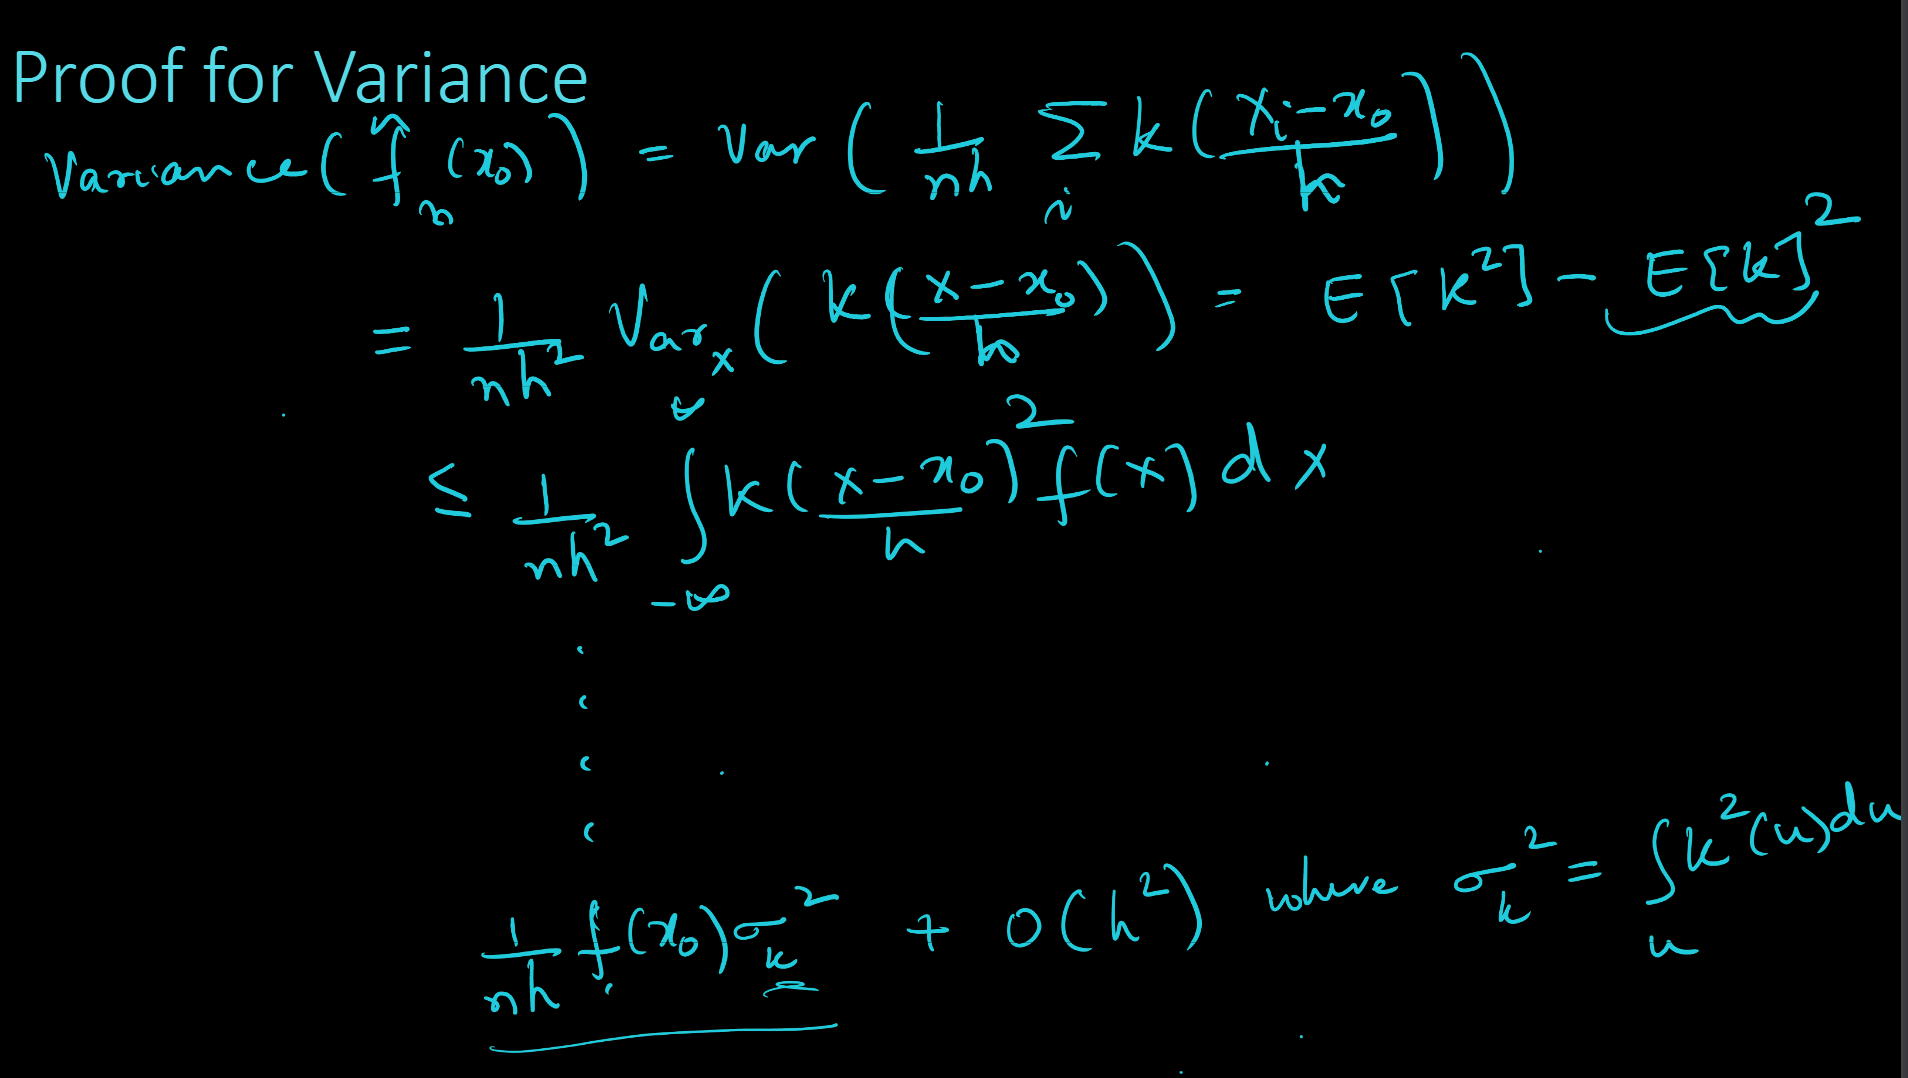 Proof for Variance
Variance(f̂ₙ(x₀)) = Var(1/nh Σᵢ k((Xᵢ−x₀)/h))
= 1/nh² Varₓ(k((x−x₀)/h)) = E[k²] − E[k]²
≤ 1/nh² ∫_{−∞}^{∞} k((x−x₀)/h)² f(x) dx
.
.
.
.
1/nh f(x₀)σₖ² + O(h²) where σₖ² = ∫ᵤ k²(u)du